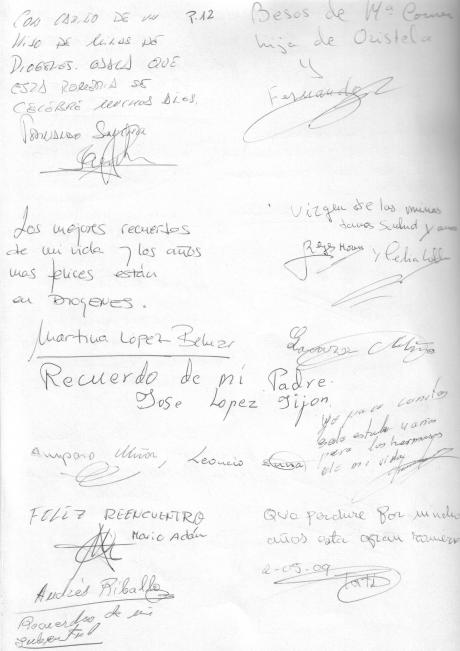 CON CARIÑO DE UN
HIJO DE MINAS DE
DIOGENES. OJALA QUE
ESTA ROMERIA SE
CELEBRE MUCHOS AÑOS.
P.12
Besos de Mª
hija de Oristela
y
Fernando
Los mejores recuerdos
de mi vida y los años
mas felices están
en DIOGENES.
Virgen de las minas
danos salud y
y Celia
Martina Lopez
Recuerdo de mi Padre.
Jose Lopez Gijon
Amparo Muñoz, Leoncio
para
solo estuve 4 años
para los hermosos
de mi vida
FELIZ REENCUENTRO
Mario Adán
Que perdure por muchos
años esta gran romeria
2-05-09
Andrés Riballo
Recuerdo de mi
juventud